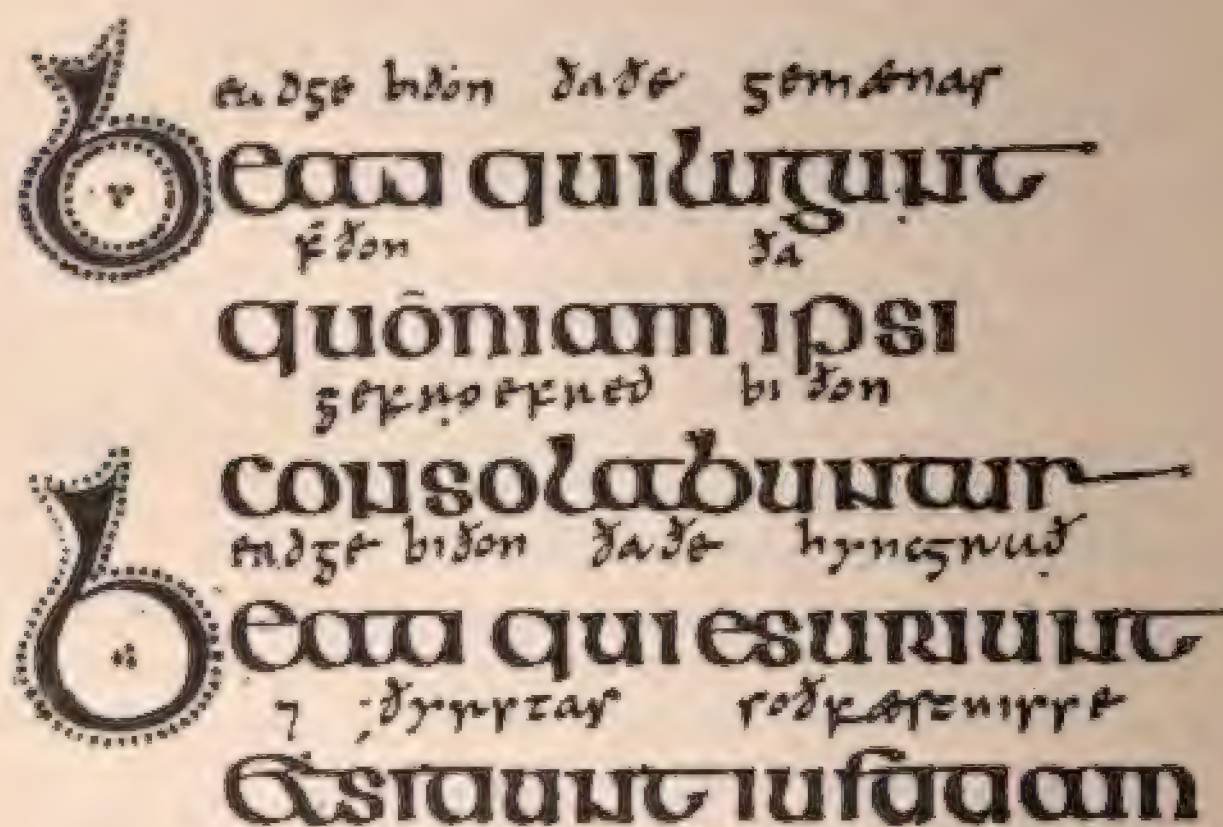 eadge biðon ða ðe gemænas
beati qui lugunt
f̄ ðon ða
quōniam ipsi
gefroefred bi ðon
consolabuntur
eadge biðon ða ðe hyncgrað
beati qui esuriunt
⁊ ðyrstas soðfæstnisse
et sitiunt iustitiam